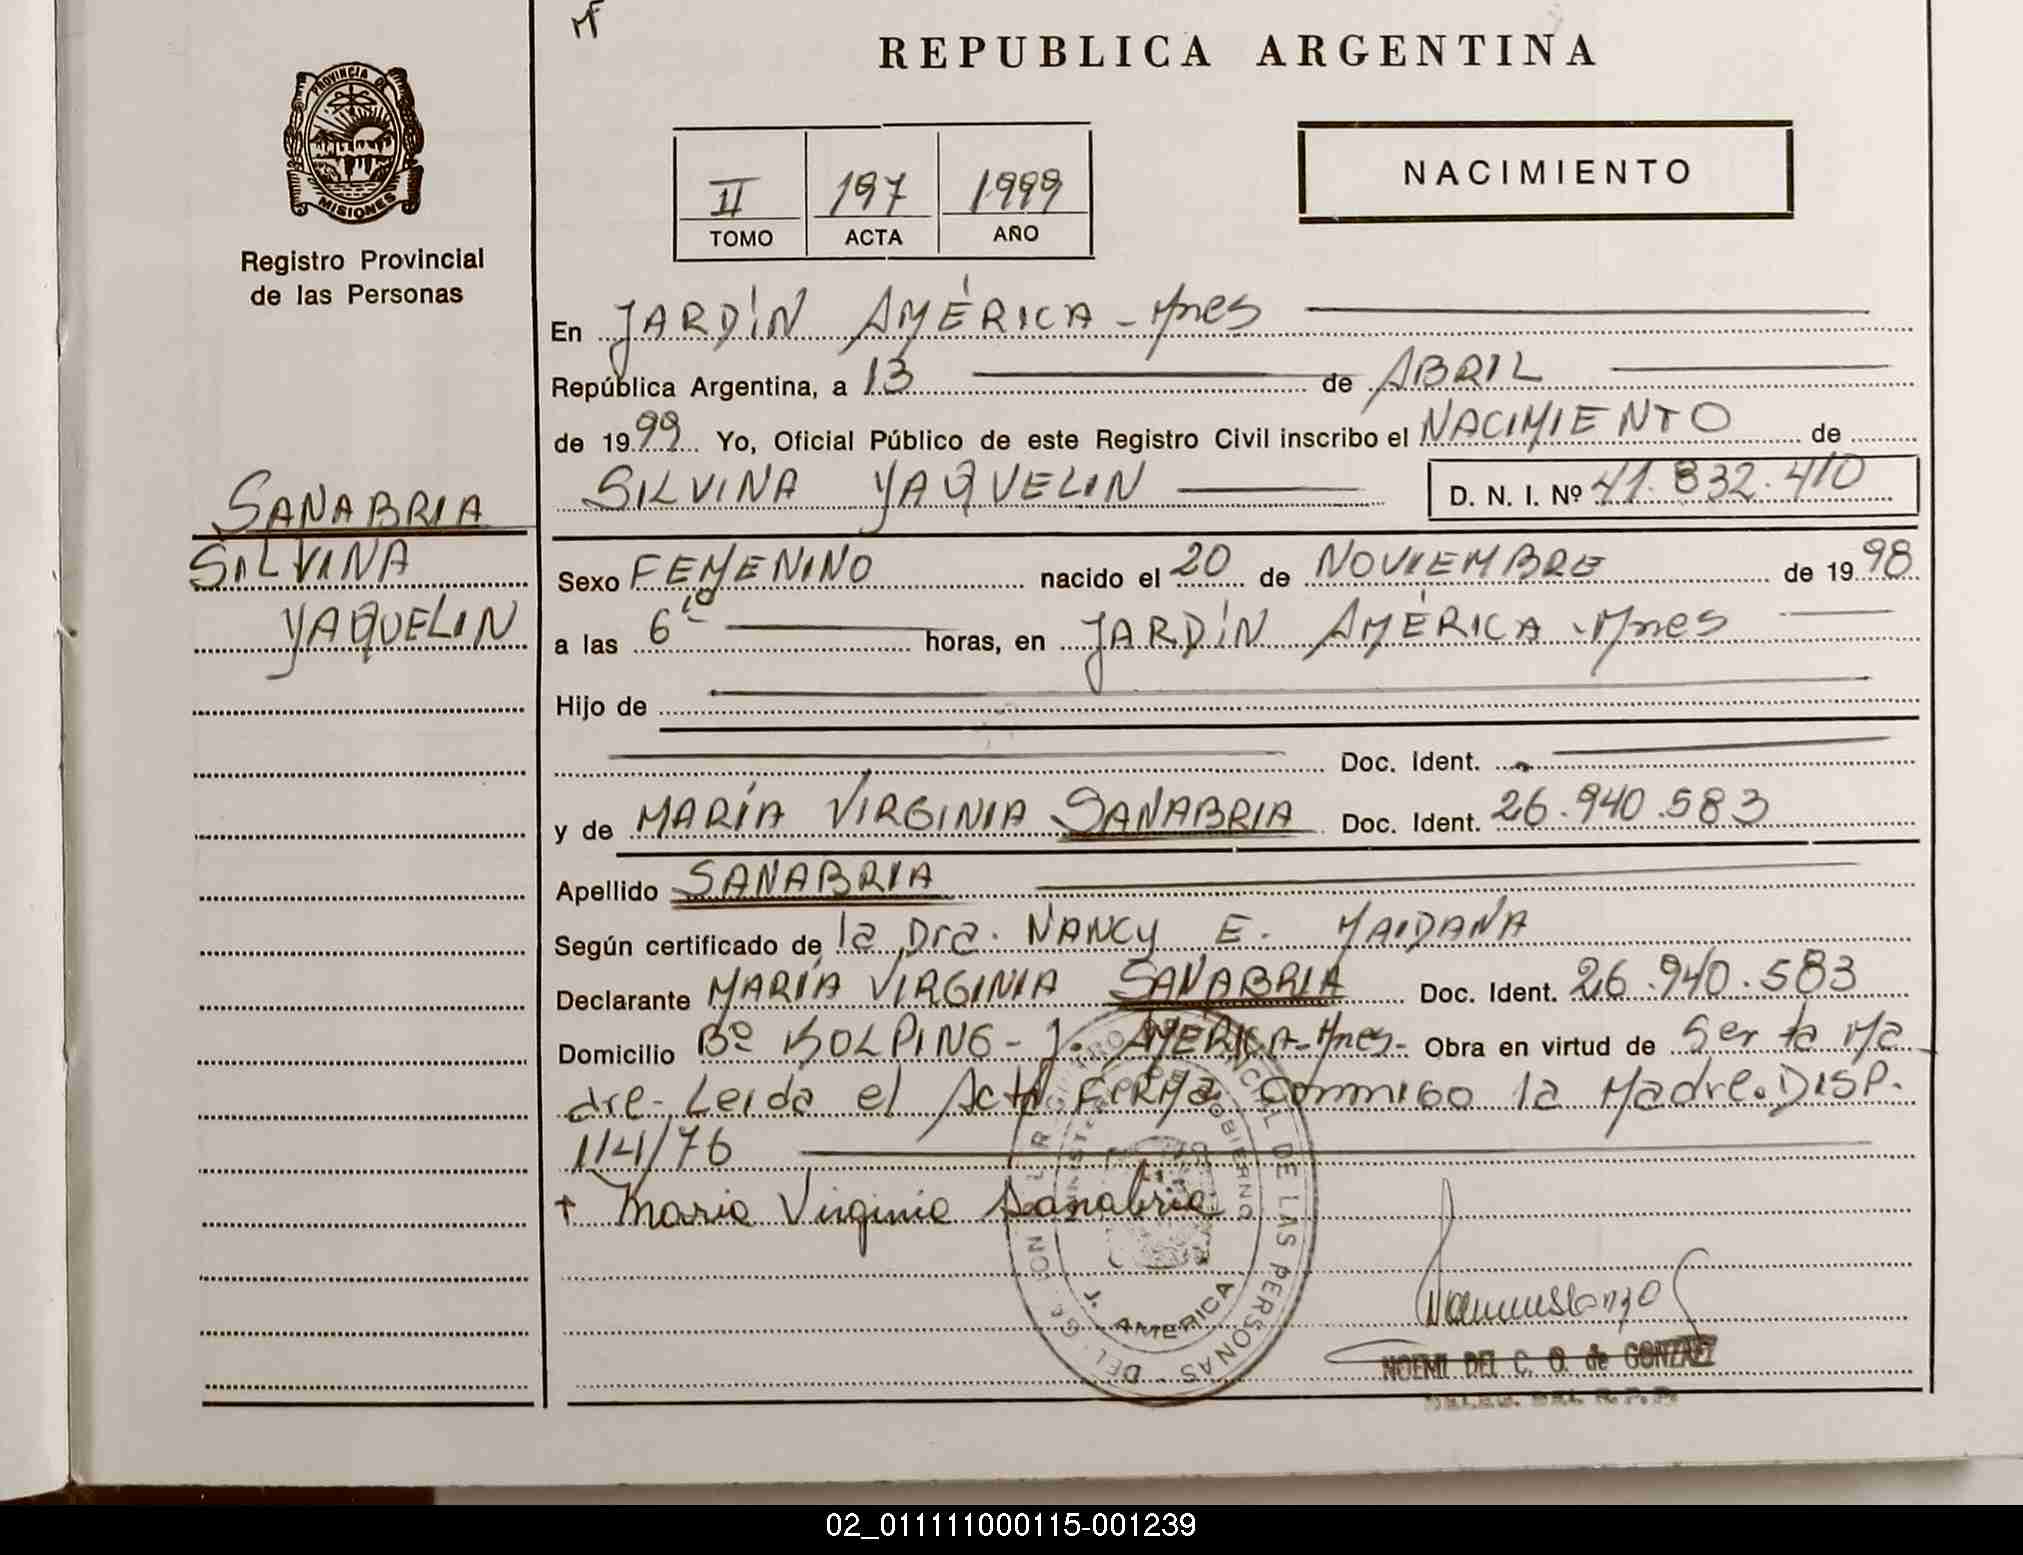 MF
REPUBLICA ARGENTINA
PROVINCIA DE
MISIONES
Registro Provincial
de las Personas
II 197 1999
TOMO ACTA AÑO
NACIMIENTO
En JARDÍN AMÉRICA - Mnes
República Argentina, a 13 de ABRIL
de 1999 Yo, Oficial Público de este Registro Civil inscribo el NACIMIENTO de
SILVINA YAQUELIN D. N. I. Nº 41.832.410
SANABRIA
SILVINA
YAQUELIN
Sexo FEMENINO nacido el 20 de NOVIEMBRE de 1998
a las 6 10 horas, en JARDÍN AMÉRICA - Mnes
Hijo de
Doc. Ident.
y de MARÍA VIRGINIA SANABRIA Doc. Ident. 26.940.583
Apellido SANABRIA
Según certificado de la Dra. NANCY E. MAIDANA
Declarante MARÍA VIRGINIA SANABRIA Doc. Ident. 26.940.583
Domicilio Bº KOLPING - J. AMERICA - Mnes - Obra en virtud de Ser la Ma
dre - Leida el Acta FIRMA Conmigo la Madre. DISP.
114/76
+ Maria Virginia Sanabria
DE LAS PERSONAS
GOBIERNO
J. AMERICA
NOEMI DEL C. O. de GONZALEZ
DELEG. DEL R. P. P.
02_011111000115-001239